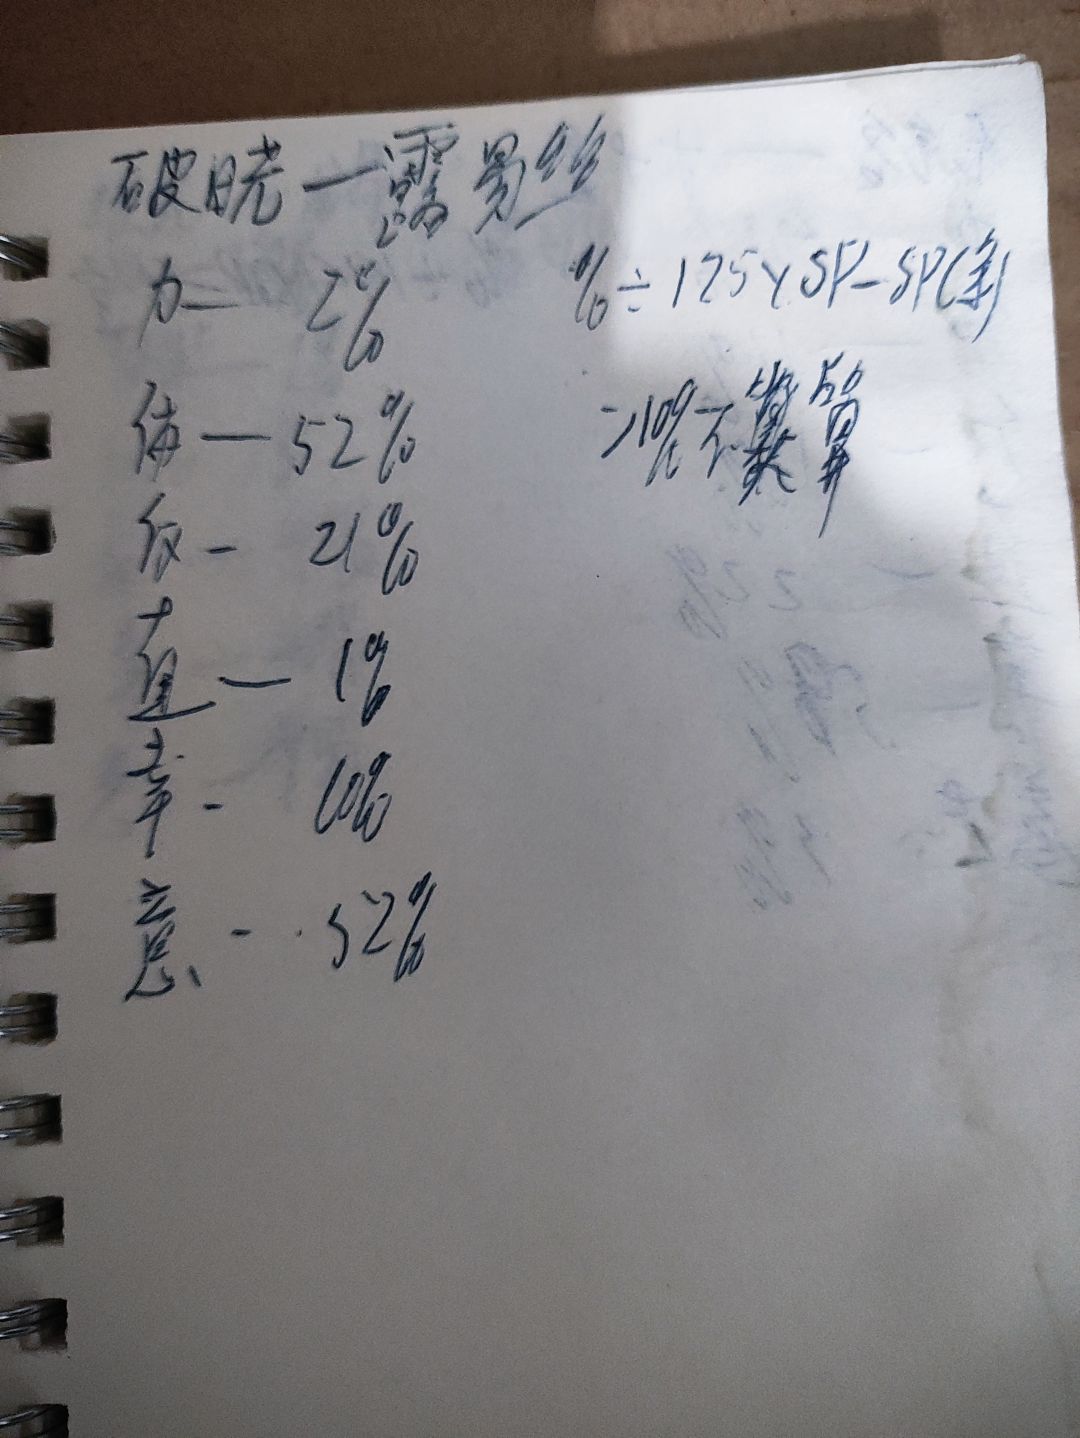 破晓—露易丝
力— 2%
%÷175×SP-SP(剩)
体—52%
>10%不
算
反- 21%
道—1%
幸- 10%
意-.52%